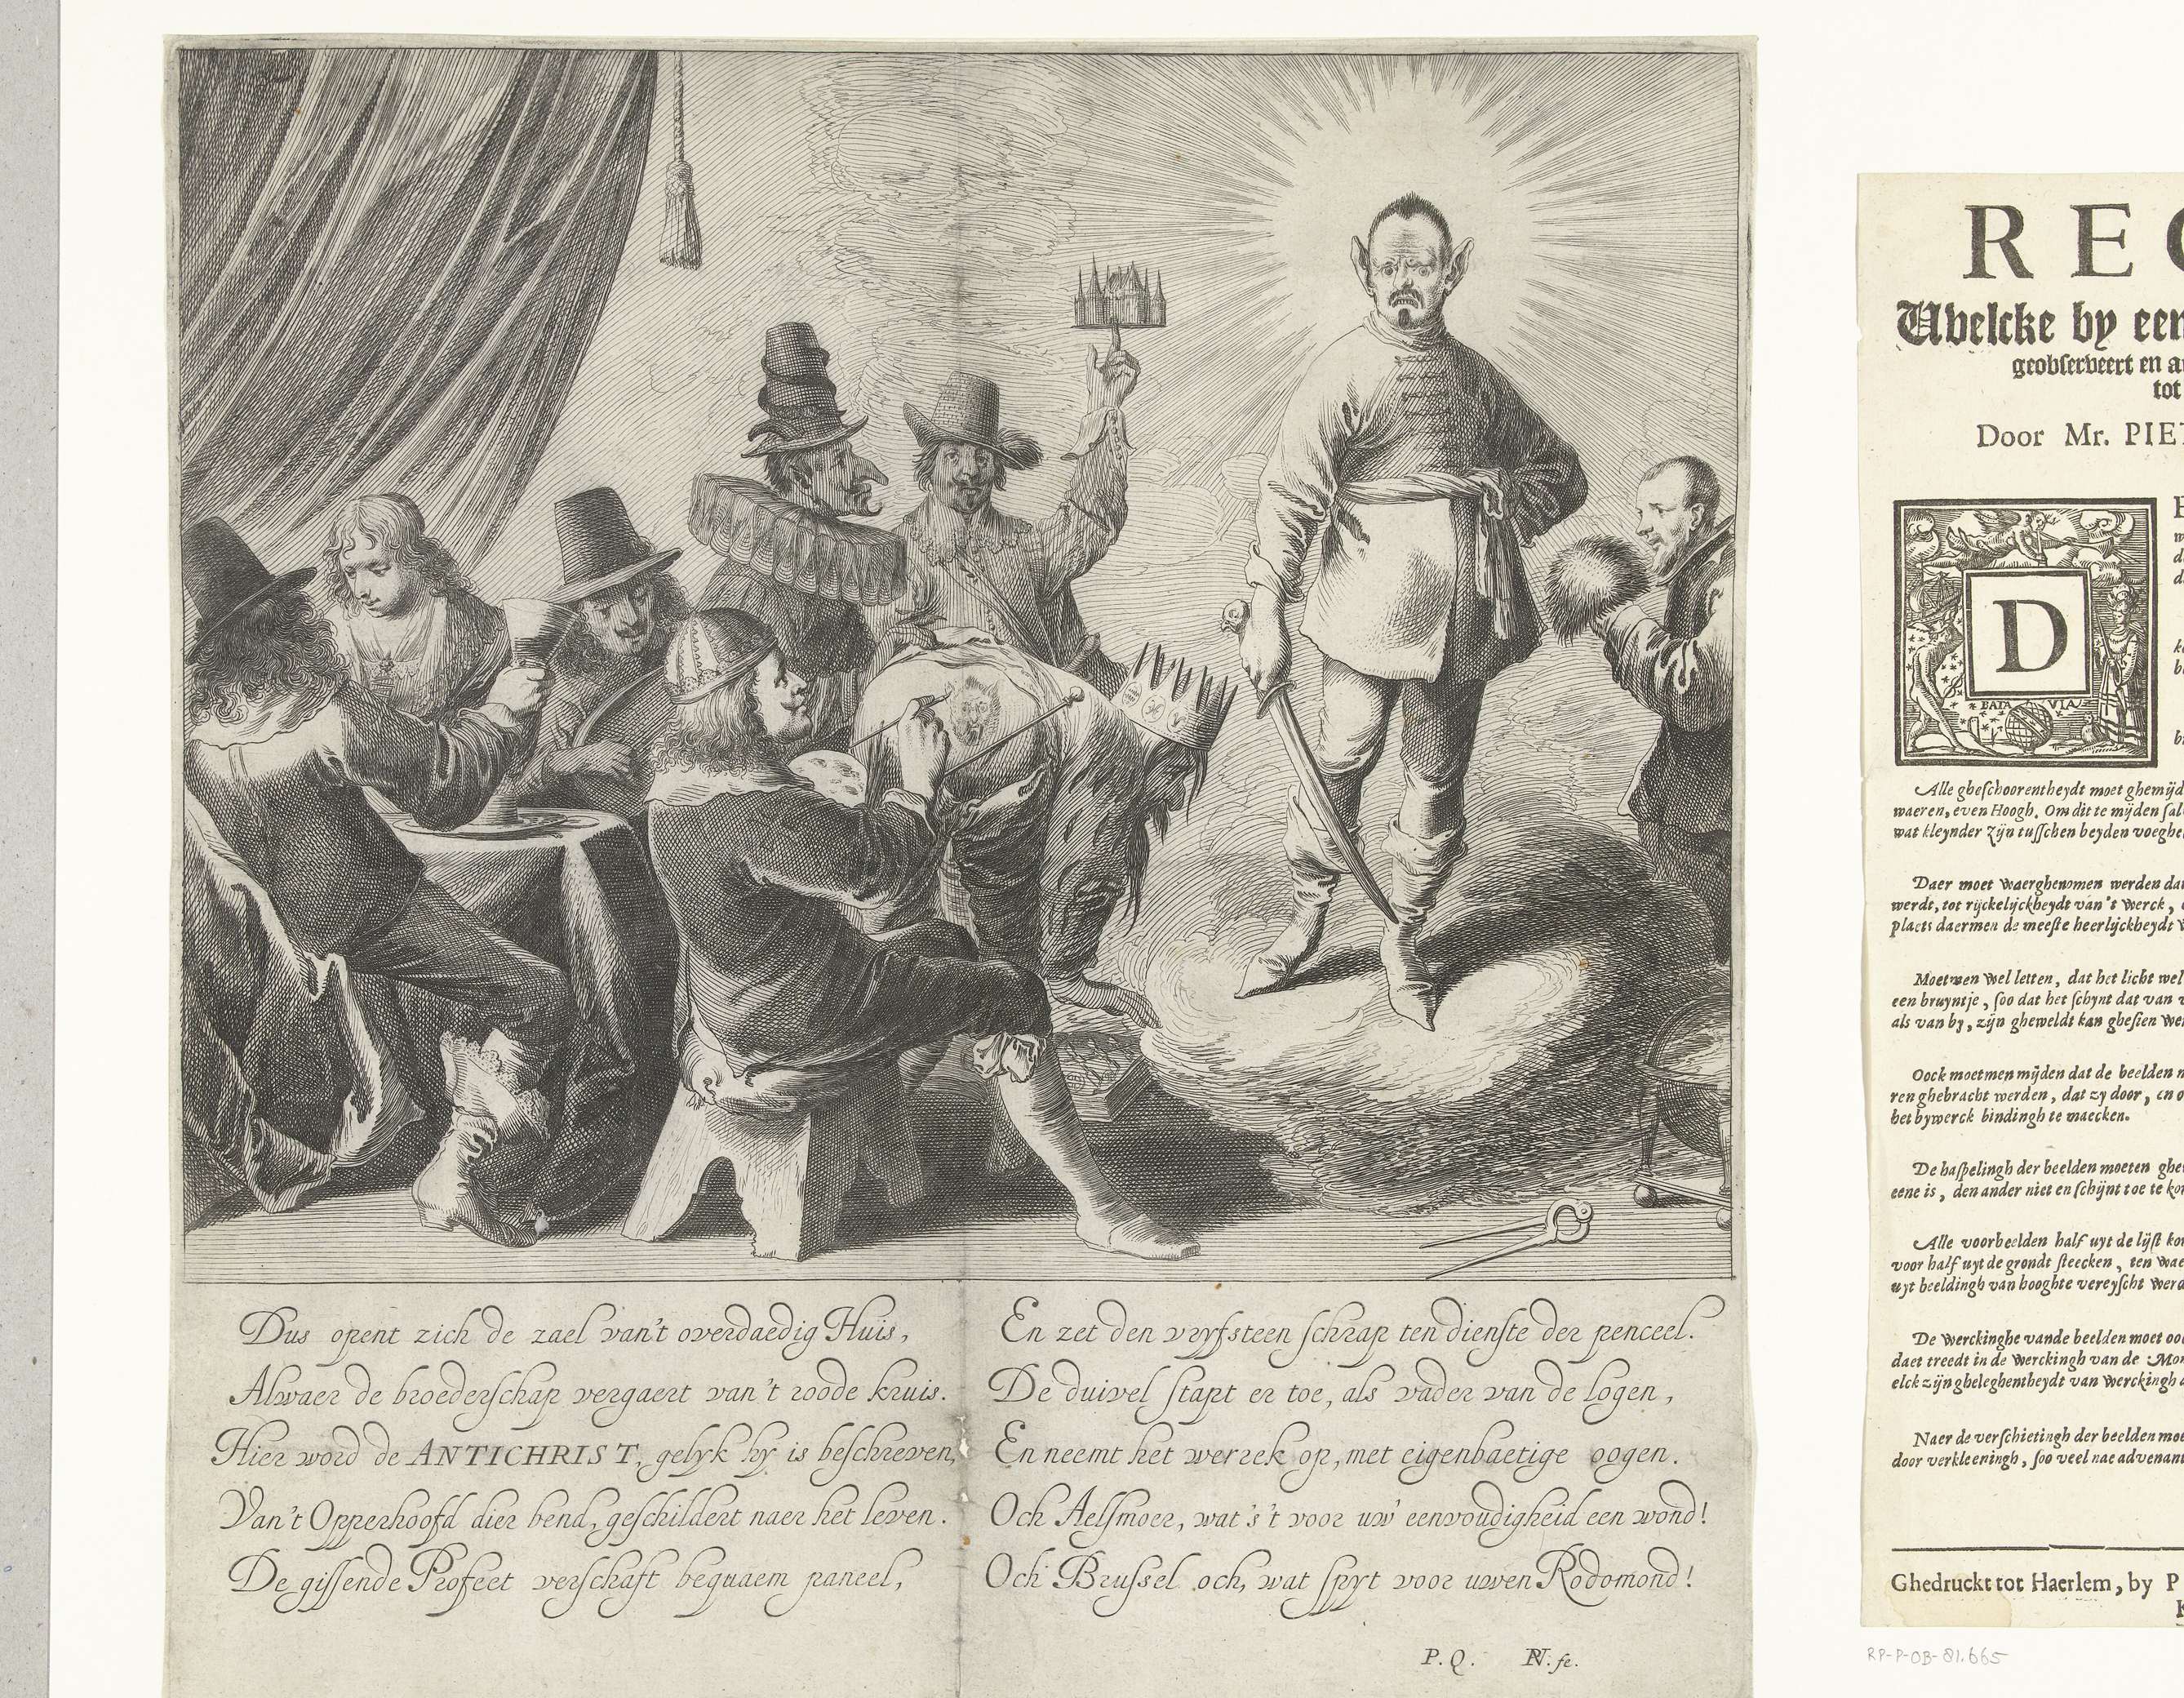 Dus opent zich de zael van't overdaedig Huis,
Alwaer de broederschap vergaert van't roode kruis.
Hier word de ANTICHRIST, gelyk hy is beschreven,
Van't Opperhoofd dier bend, geschildert naer het leven.
De gissende Profeet verschaft bequaem paneel,
En zet den vryfsteen schrap ten dienste der penceel.
De duivel stapt er toe, als vader van de logen,
En neemt het werrek op, met eigenbaetige oogen.
Och Aelsmoer, wat's't voor uw' eenvoudigheid een wond!
Och Brussel och, wat spyt voor uwen Rodomond!
P. Q. PN. fe.
REG
Welcke by een
geobserveert en a
tot
Door Mr. PIET
D
BATAVIA
Alle gheschoorentheydt moet ghemijd
waeren, even Hoogh. Om dit te mijden sal
wat kleynder zijn tusschen beyden voeghe
Daer moet waerghenomen werden dat
werdt, tot rijckelijckheydt van't werck,
plaets daermen de meeste heerlijckheydt
Moetmen wel letten, dat het licht wel
een bruyntje, soo dat het schynt dat van
als van by, zijn gheweldt kan ghesien wer
Oock moetmen mijden dat de beelden
ren ghebracht werden, dat zy door, en o
het bywerck bindingh te maecken.
De haspelingh der beelden moeten ghe
eene is, den ander niet en schijnt toe te ko
Alle voorbeelden half uyt de lijst ko
voor half uyt de grondt steecken, ten wae
uyt beeldingh van hooghte vereyscht werd
De werckinghe vande beelden moet oo
daet treedt in de werckingh van de Mo
elck zijn gheleghentheydt van werckingh
Naer de verschietingh der beelden moe
door verkleeningh, soo veel nae advenant
Ghedruckt tot Haerlem, by P
K
RP-P-OB-81.665